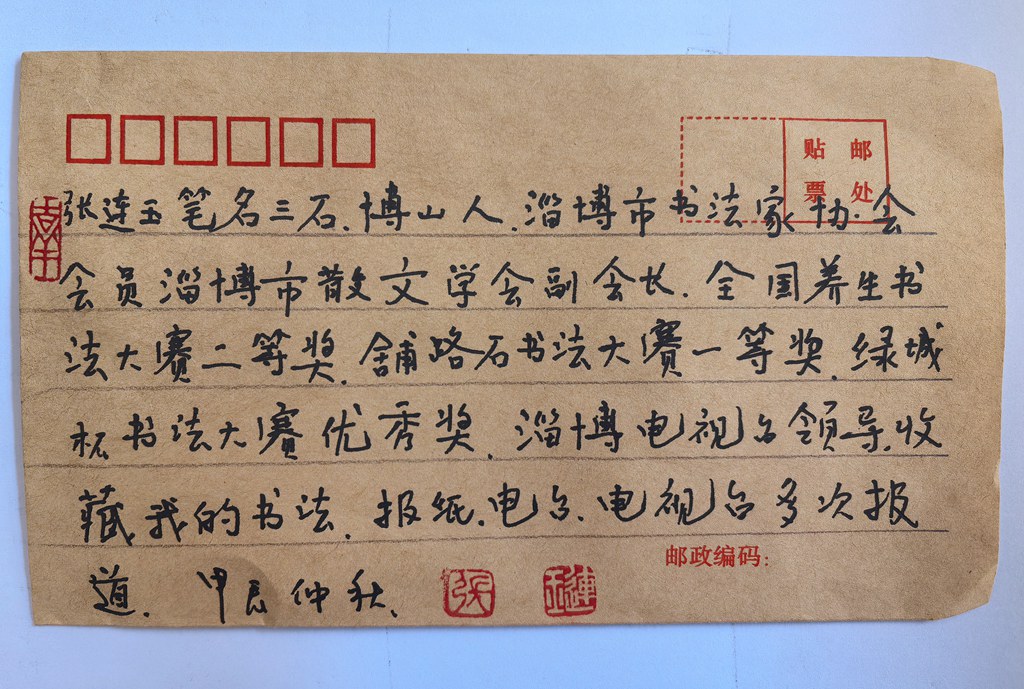 贴 邮
票 处
张连玉笔名三石.博山人.淄博市书法家协.会
会员淄博市散文学会副会长.全国养生书
法大赛二等奖.舖路石书法大赛一等奖.绿城
杯书法大赛优秀奖.淄博电视台领导.收
藏我的书法.报纸.电台.电视台多次报
道.甲辰仲秋.
张
連玉
邮政编码: